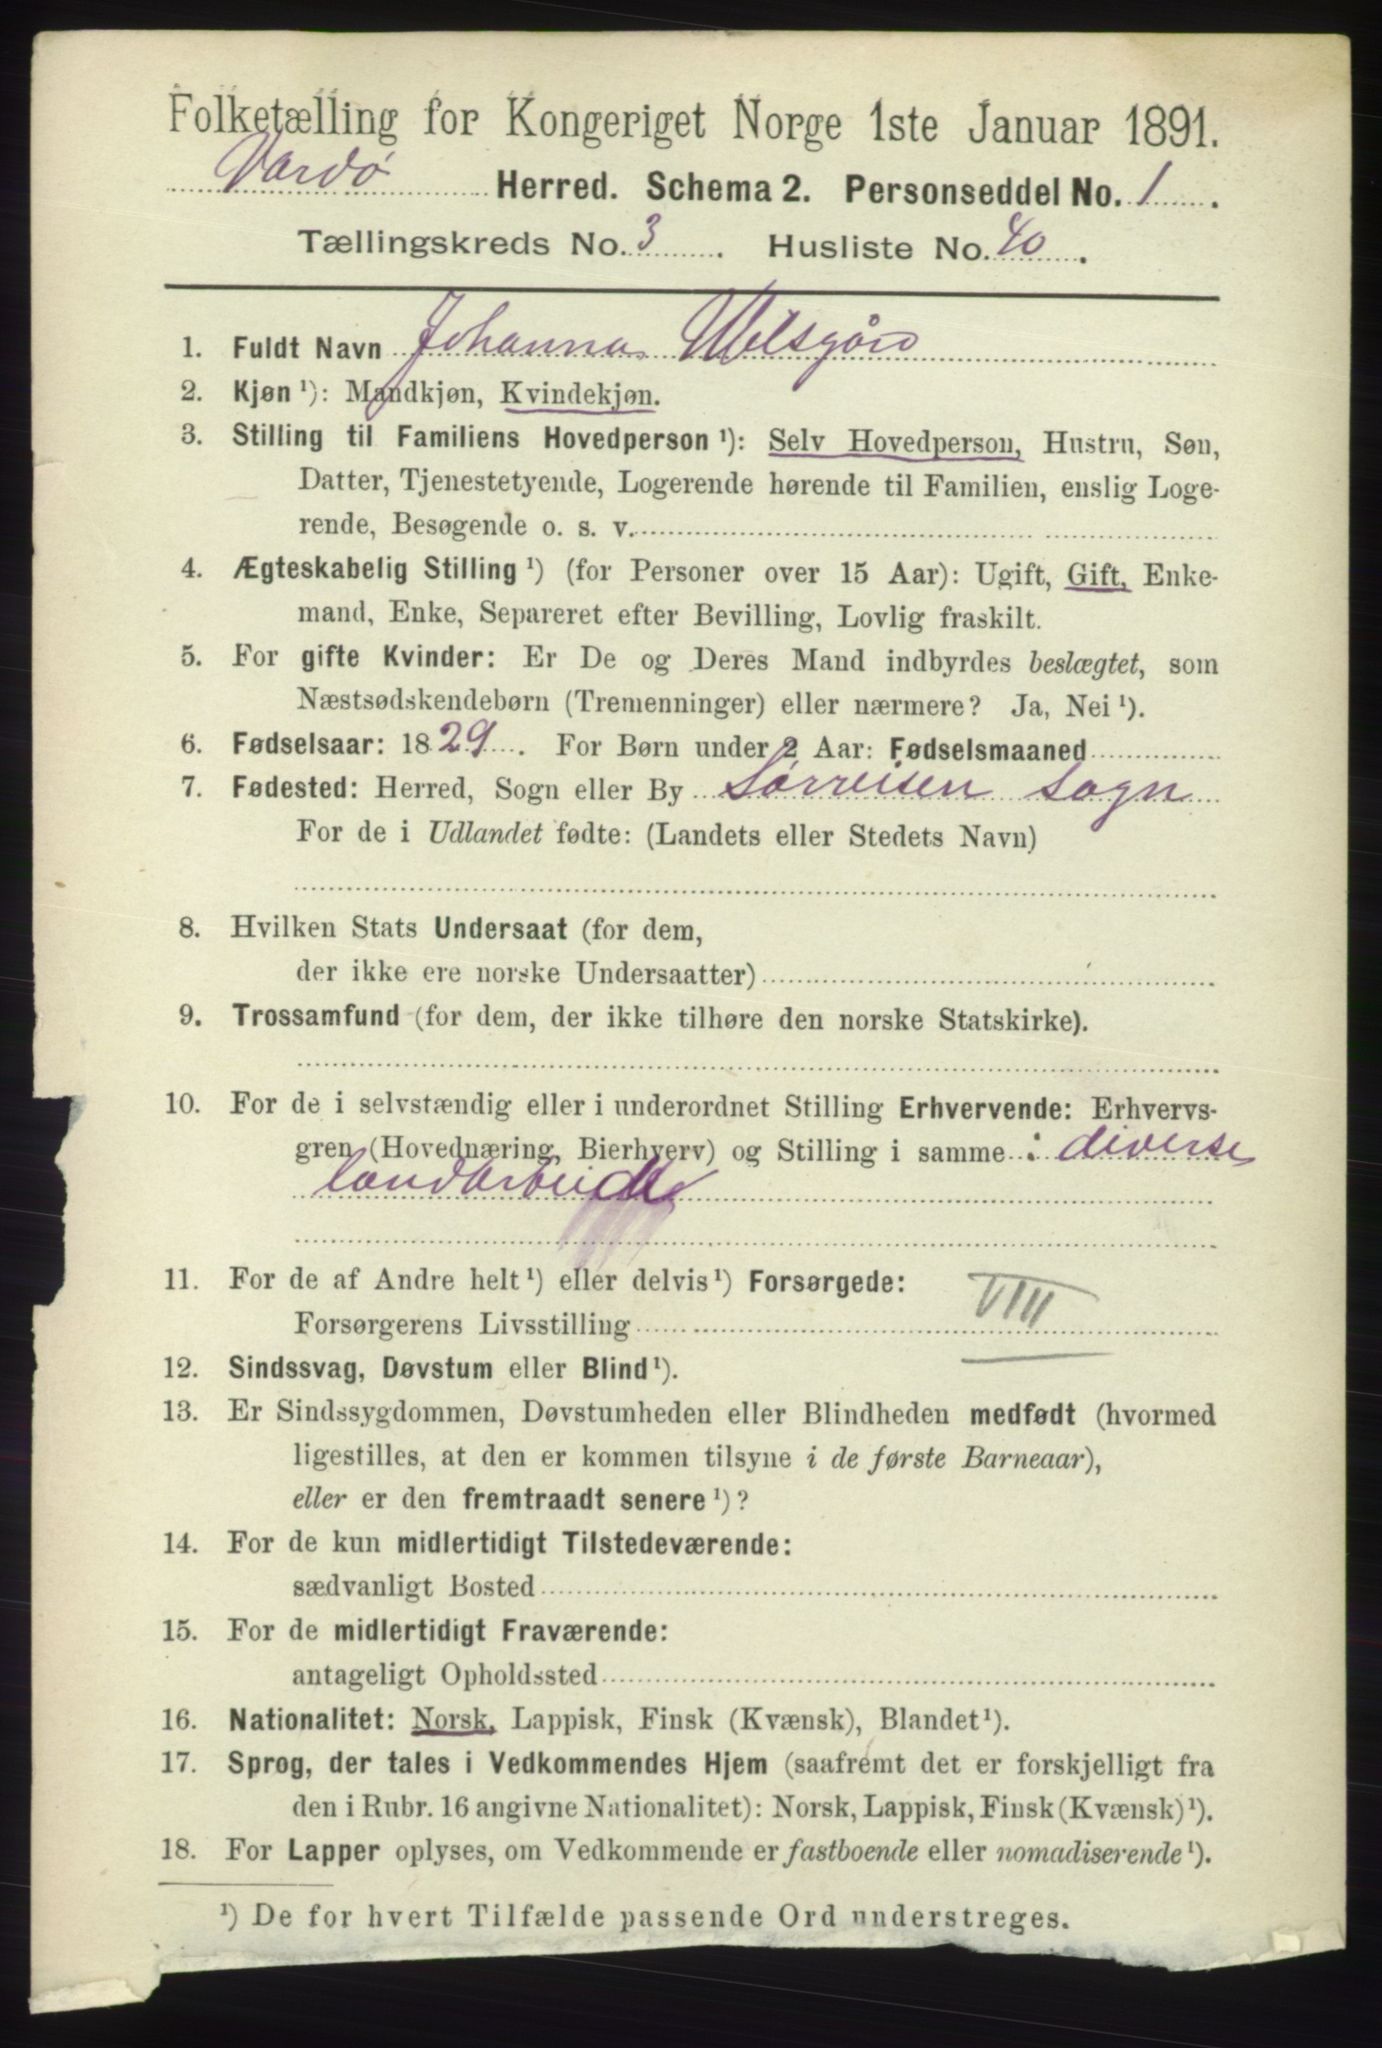 Folketælling for Kongeriget Norge 1ste Januar 1891.
Vardø Herred. Schema 2. Personseddel No. 1.
Tællingskreds No. 3. Husliste No. 40.
1. Fuldt Navn Johanna
2. Kjøn ¹): Mandkjøn, Kvindekjøn.
3. Stilling til Familiens Hovedperson ¹): Selv Hovedperson, Hustru, Søn,
Datter, Tjenestetyende, Logerende hørende til Familien, enslig Loge-
rende, Besøgende o. s. v.
4. Ægteskabelig Stilling ¹) (for Personer over 15 Aar): Ugift, Gift, Enke-
mand, Enke, Separeret efter Bevilling, Lovlig fraskilt.
5. For gifte Kvinder: Er De og Deres Mand indbyrdes beslægtet, som
Næstsødskendebørn (Tremenninger) eller nærmere? Ja, Nei ¹).
6. Fødselsaar: 1829. For Børn under 2 Aar: Fødselsmaaned
7. Fødested: Herred, Sogn eller By Sørreisen Sogn
For de i Udlandet fødte: (Landets eller Stedets Navn)
8. Hvilken Stats Undersaat (for dem,
der ikke ere norske Undersaatter)
9. Trossamfund (for dem, der ikke tilhøre den norske Statskirke).
10. For de i selvstændig eller i underordnet Stilling Erhvervende: Erhvervs-
gren (Hovednæring, Bierhverv) og Stilling i samme : diverse
landarbeide
11. For de af Andre helt ¹) eller delvis ¹) Forsørgede:
Forsørgerens Livsstilling VIII
12. Sindssvag, Døvstum eller Blind ¹).
13. Er Sindssygdommen, Døvstumheden eller Blindheden medfødt (hvormed
ligestilles, at den er kommen tilsyne i de første Barneaar),
eller er den fremtraadt senere ¹)?
14. For de kun midlertidigt Tilstedeværende:
sædvanligt Bosted
15. For de midlertidigt Fraværende:
antageligt Opholdssted
16. Nationalitet: Norsk, Lappisk, Finsk (Kvænsk), Blandet ¹).
17. Sprog, der tales i Vedkommendes Hjem (saafremt det er forskjelligt fra
den i Rubr. 16 angivne Nationalitet): Norsk, Lappisk, Finsk (Kvænsk) ¹).
18. For Lapper oplyses, om Vedkommende er fastboende eller nomadiserende ¹).
¹) De for hvert Tilfælde passende Ord understreges.